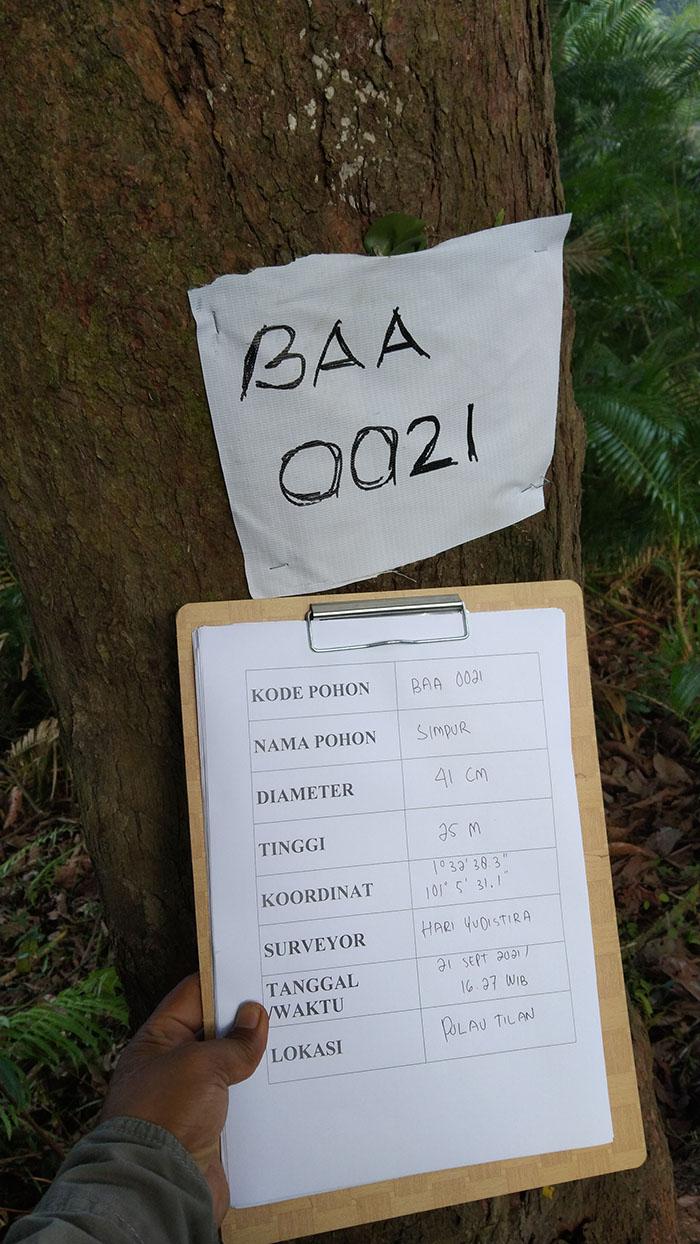 BAA
0021
KODE POHON BAA 0021
NAMA POHON SIMPUR
DIAMETER 41 CM
TINGGI 25 M
KOORDINAT 1° 32' 38.3"
101° 5' 31.1"
SURVEYOR HARI YUDISTIRA
TANGGAL 21 SEPT 2021 /
/WAKTU 16.27 WIB
LOKASI PULAU TILAN